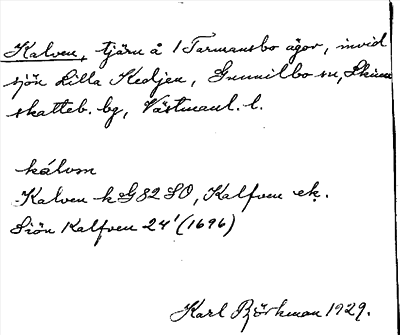 Kalven, tjärn å 1 Tarmansbo ägor, invid
sjön Lilla Kedjen, Gunnilbo sn, Skinn
skatteb. bg, Västmanl. l.
kálvm
Kalven k G 82 SO, Kalfven ek.
Siön Kalfven 24' (1696)
Karl Björkman 1929.